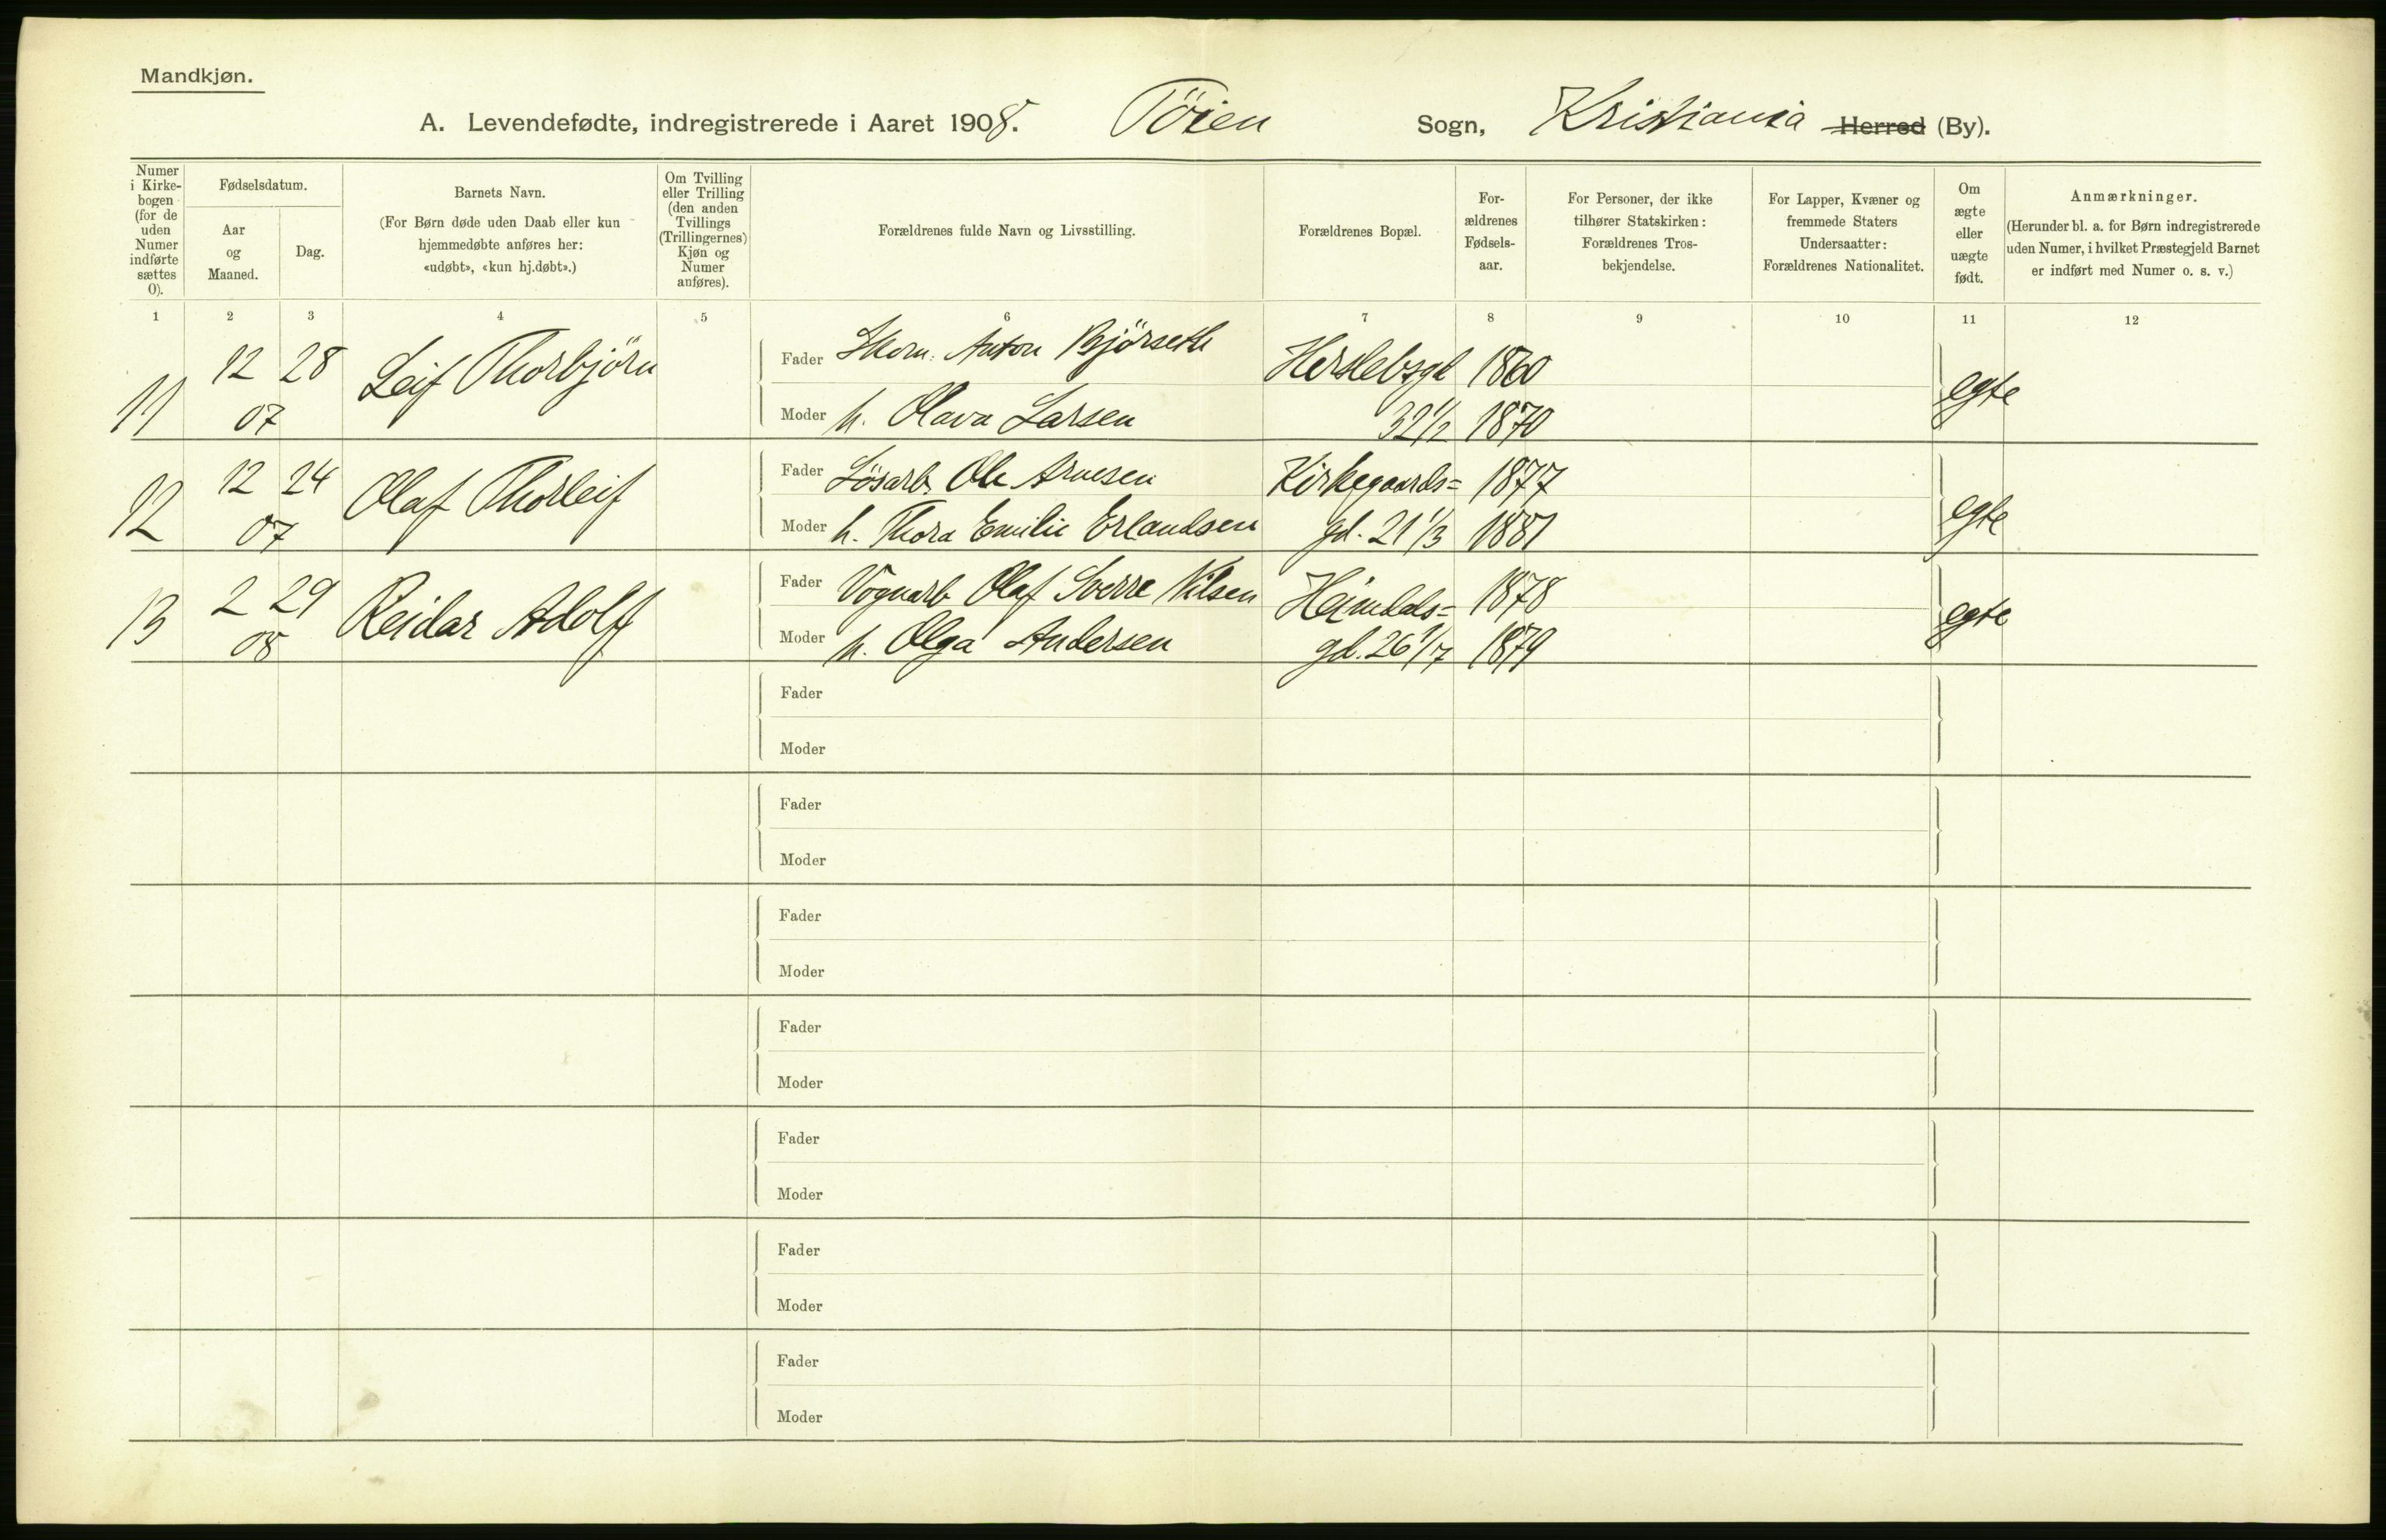 Mandkjøn.
A. Levendefødte, indregistrerede i Aaret 1908. Töien Sogn, Kristiania Herred (By).
Numer i Kirkebogen (for de uden Numer indførte sættes 0).
Fødselsdatum.
Aar og Maaned.
Dag.
Barnets Navn.
(For Børn døde uden Daab eller kun hjemmedøbte anføres her: «udøbt», «kun hj.døbt».)
Om Tvilling eller Trilling (den anden Tvillings (Trillingernes) Kjøn og Numer anføres).
Forældrenes fulde Navn og Livsstilling.
Forældrenes Bopæl.
For-ældrenes Fødsels-aar.
For Personer, der ikke tilhører Statskirken: Forældrenes Tros-bekjendelse.
For Lapper, Kvæner og fremmede Staters Undersaatter: Forældrenes Nationalitet.
Om ægte eller uægte født.
Anmærkninger.
(Herunder bl. a. for Børn indregistrerede uden Numer, i hvilket Præstegjeld Barnet er indført med Numer o. s. v.)
1 2 3 4 5 6 7 8 9 10 11 12
11 12 28 Leif Thorbjörn Fader Skom. Anton Björseth Herslebsgd 1860 egte
07 Moder h. Olava Larsen 32 1/2 1870
12 12 24 Olaf Thorleif Fader Lösarb. Ole Arnesen Kirkegaards= 1877 egte
07 Moder h. Thora Emilie Erlandsen gd. 21 1/3 1881
13 2 29 Reidar Adolf Fader Vognarb Olaf Sverre Nilsen Heimdals= 1878 egte
08 Moder h. Olga Andersen gd. 26 1/7 1879
Fader
Moder
Fader
Moder
Fader
Moder
Fader
Moder
Fader
Moder
Fader
Moder
Fader
Moder